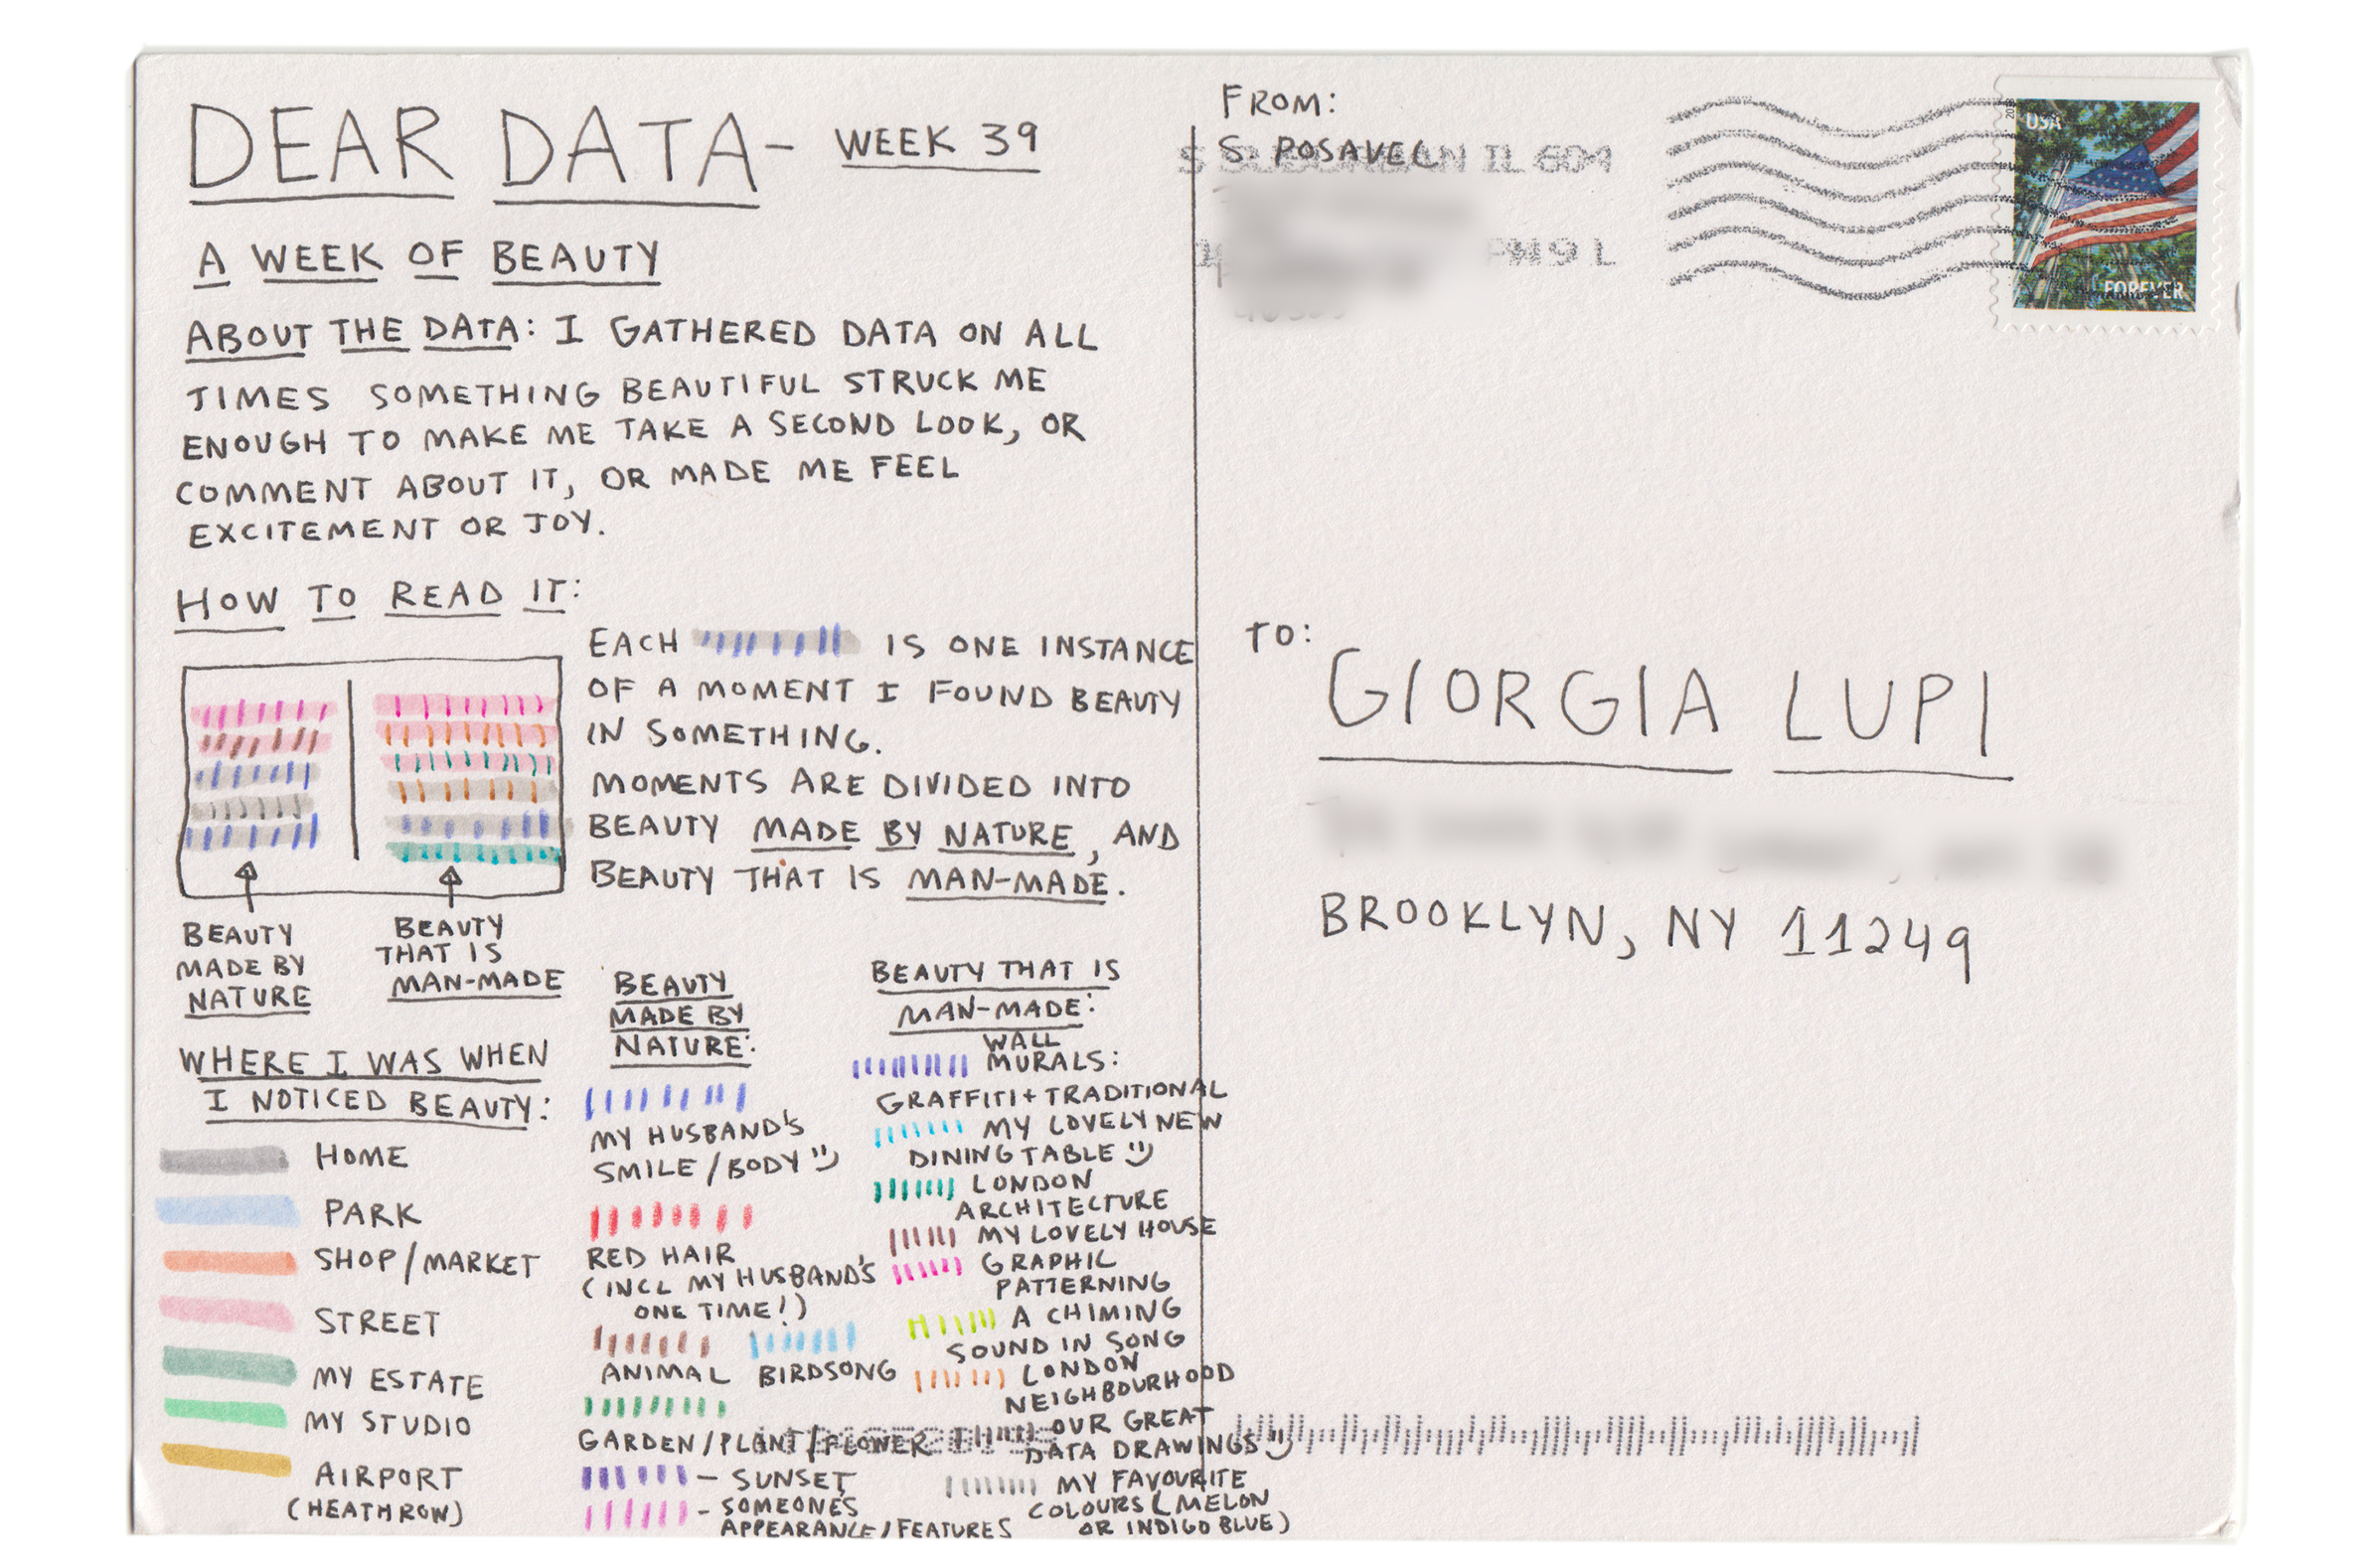 DEAR DATA- WEEK 39
A WEEK OF BEAUTY
ABOUT THE DATA: I GATHERED DATA ON ALL
TIMES SOMETHING BEAUTIFUL STRUCK ME
ENOUGH TO MAKE ME TAKE A SECOND LOOK, OR
COMMENT ABOUT IT, OR MADE ME FEEL
EXCITEMENT OR JOY.
HOW TO READ IT:
EACH IS ONE INSTANCE
OF A MOMENT I FOUND BEAUTY
IN SOMETHING.
MOMENTS ARE DIVIDED INTO
BEAUTY MADE BY NATURE, AND
BEAUTY THAT IS MAN-MADE.
BEAUTY
MADE BY
NATURE
BEAUTY
THAT IS
MAN-MADE
WHERE I WAS WHEN
I NOTICED BEAUTY:
HOME
PARK
SHOP/MARKET
STREET
MY ESTATE
MY STUDIO
AIRPORT
(HEATHROW)
BEAUTY
MADE BY
NATURE:
MY HUSBAND'S
SMILE/BODY
RED HAIR
(INCL MY HUSBAND'S
ONE TIME!)
ANIMAL BIRDSONG
GARDEN/PLANT/FLOWER
- SUNSET
- SOMEONE'S
APPEARANCE/FEATURES
BEAUTY THAT IS
MAN-MADE:
WALL
MURALS:
GRAFFITI + TRADITIONAL
MY LOVELY NEW
DINING TABLE
LONDON
ARCHITECTURE
MY LOVELY HOUSE
GRAPHIC
PATTERNING
A CHIMING
SOUND IN SONG
LONDON
NEIGHBOURHOOD
OUR GREAT
DATA DRAWINGS
MY FAVOURITE
COLOURS (MELON
OR INDIGO BLUE)
FROM:
S. POSAVEC
IL 604
PM 9 L
USA
FOREVER
TO:
GIORGIA LUPI
BROOKLYN, NY 11249